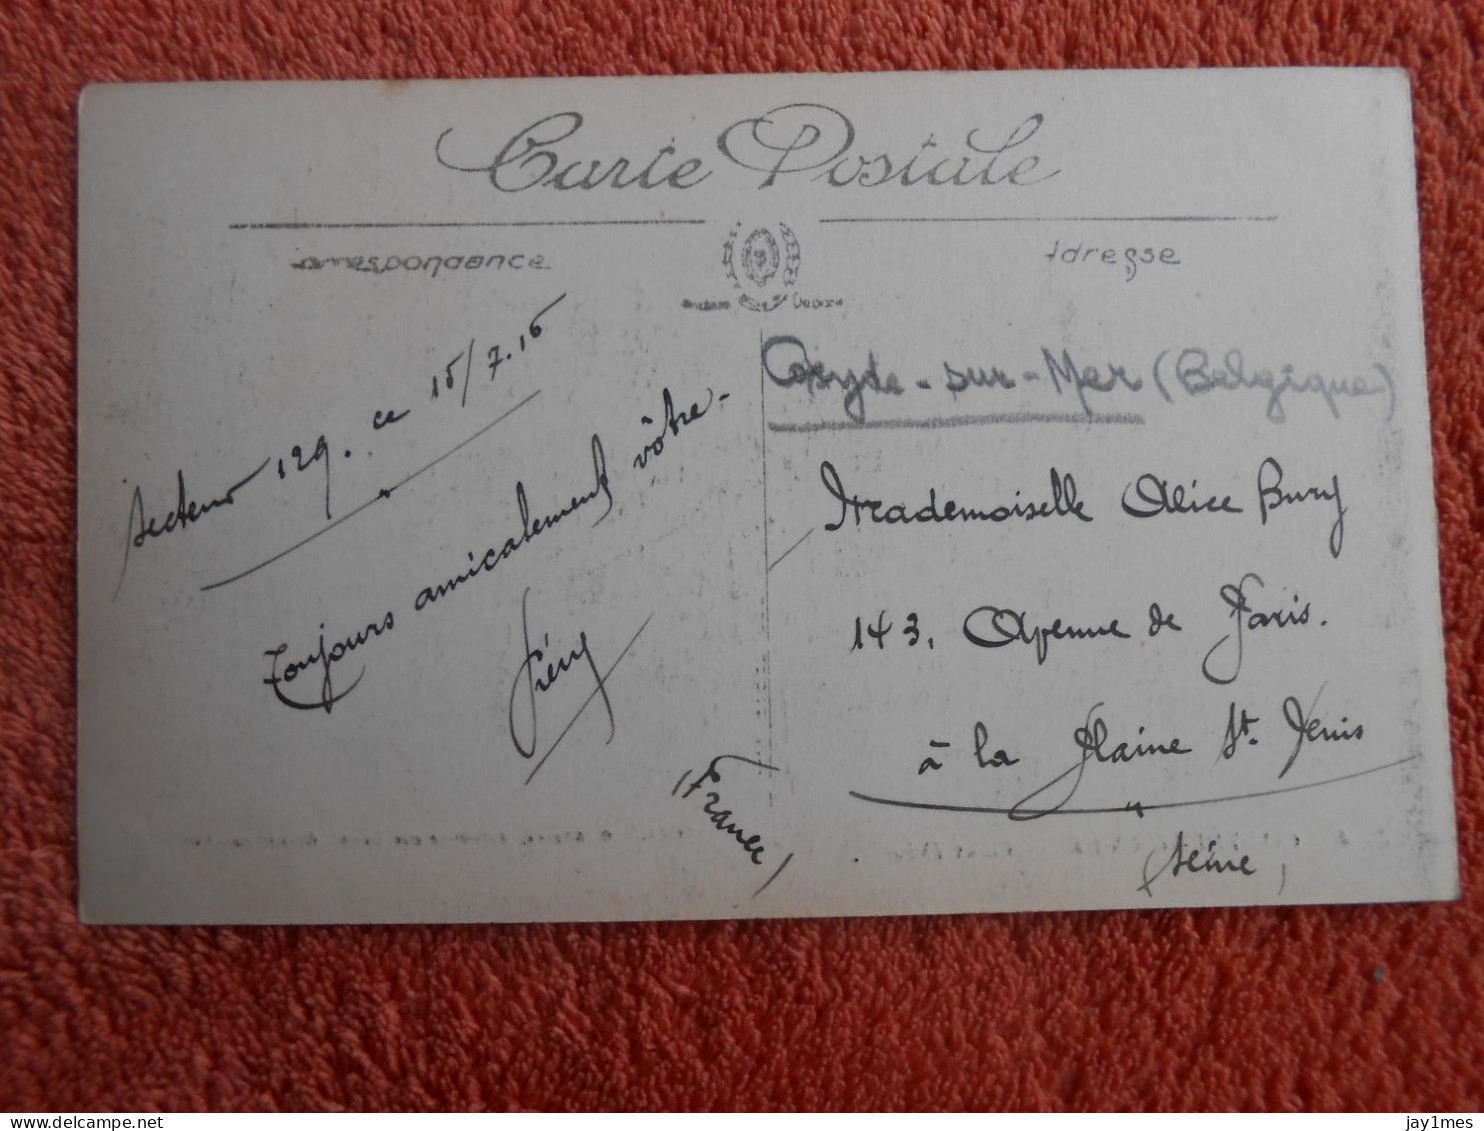 Carte Postale
Correspondance
Adresse
Secteur 129. ce 15/7.16
Toujours amicalement vôtre -
Coxyde - sur - Mer (Belgique)
Mademoiselle Alice Bury
143, Avenue de Paris.
à la Plaine St. Denis
(Seine)
(France)
jay1mes
www.delcampe.net